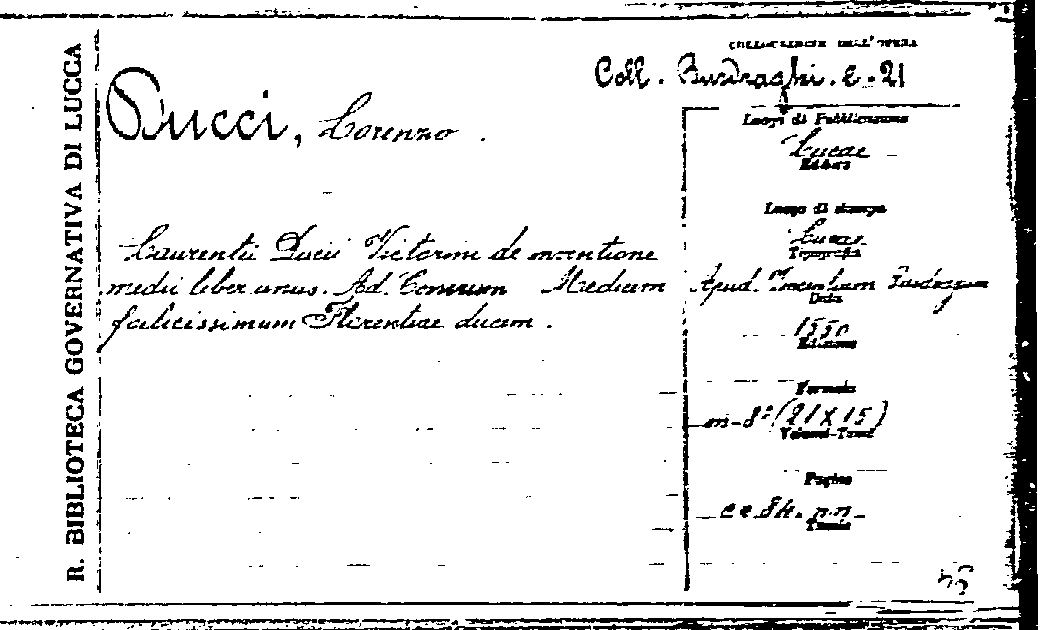 R. BIBLIOTECA GOVERNATIVA DI LUCCA
COLLOCAZIONE DELL'OPERA
Coll. Busdraghi. e-21
Ducci, Lorenzo.
Luogo di Pubblicazione
Lucae
Editore
Luogo di stampa
Lucae
Tipografia
Laurentii Ducii Victorini de
medii liber unus. Ad. Medicem
felicissimum Florentiae ducem.
Apud. Vincentium
Data
1550
Edizione
Formato
in-8° (21x15)
Volumi-Tomi
Pagine
cc 84. n.n.
Tavole